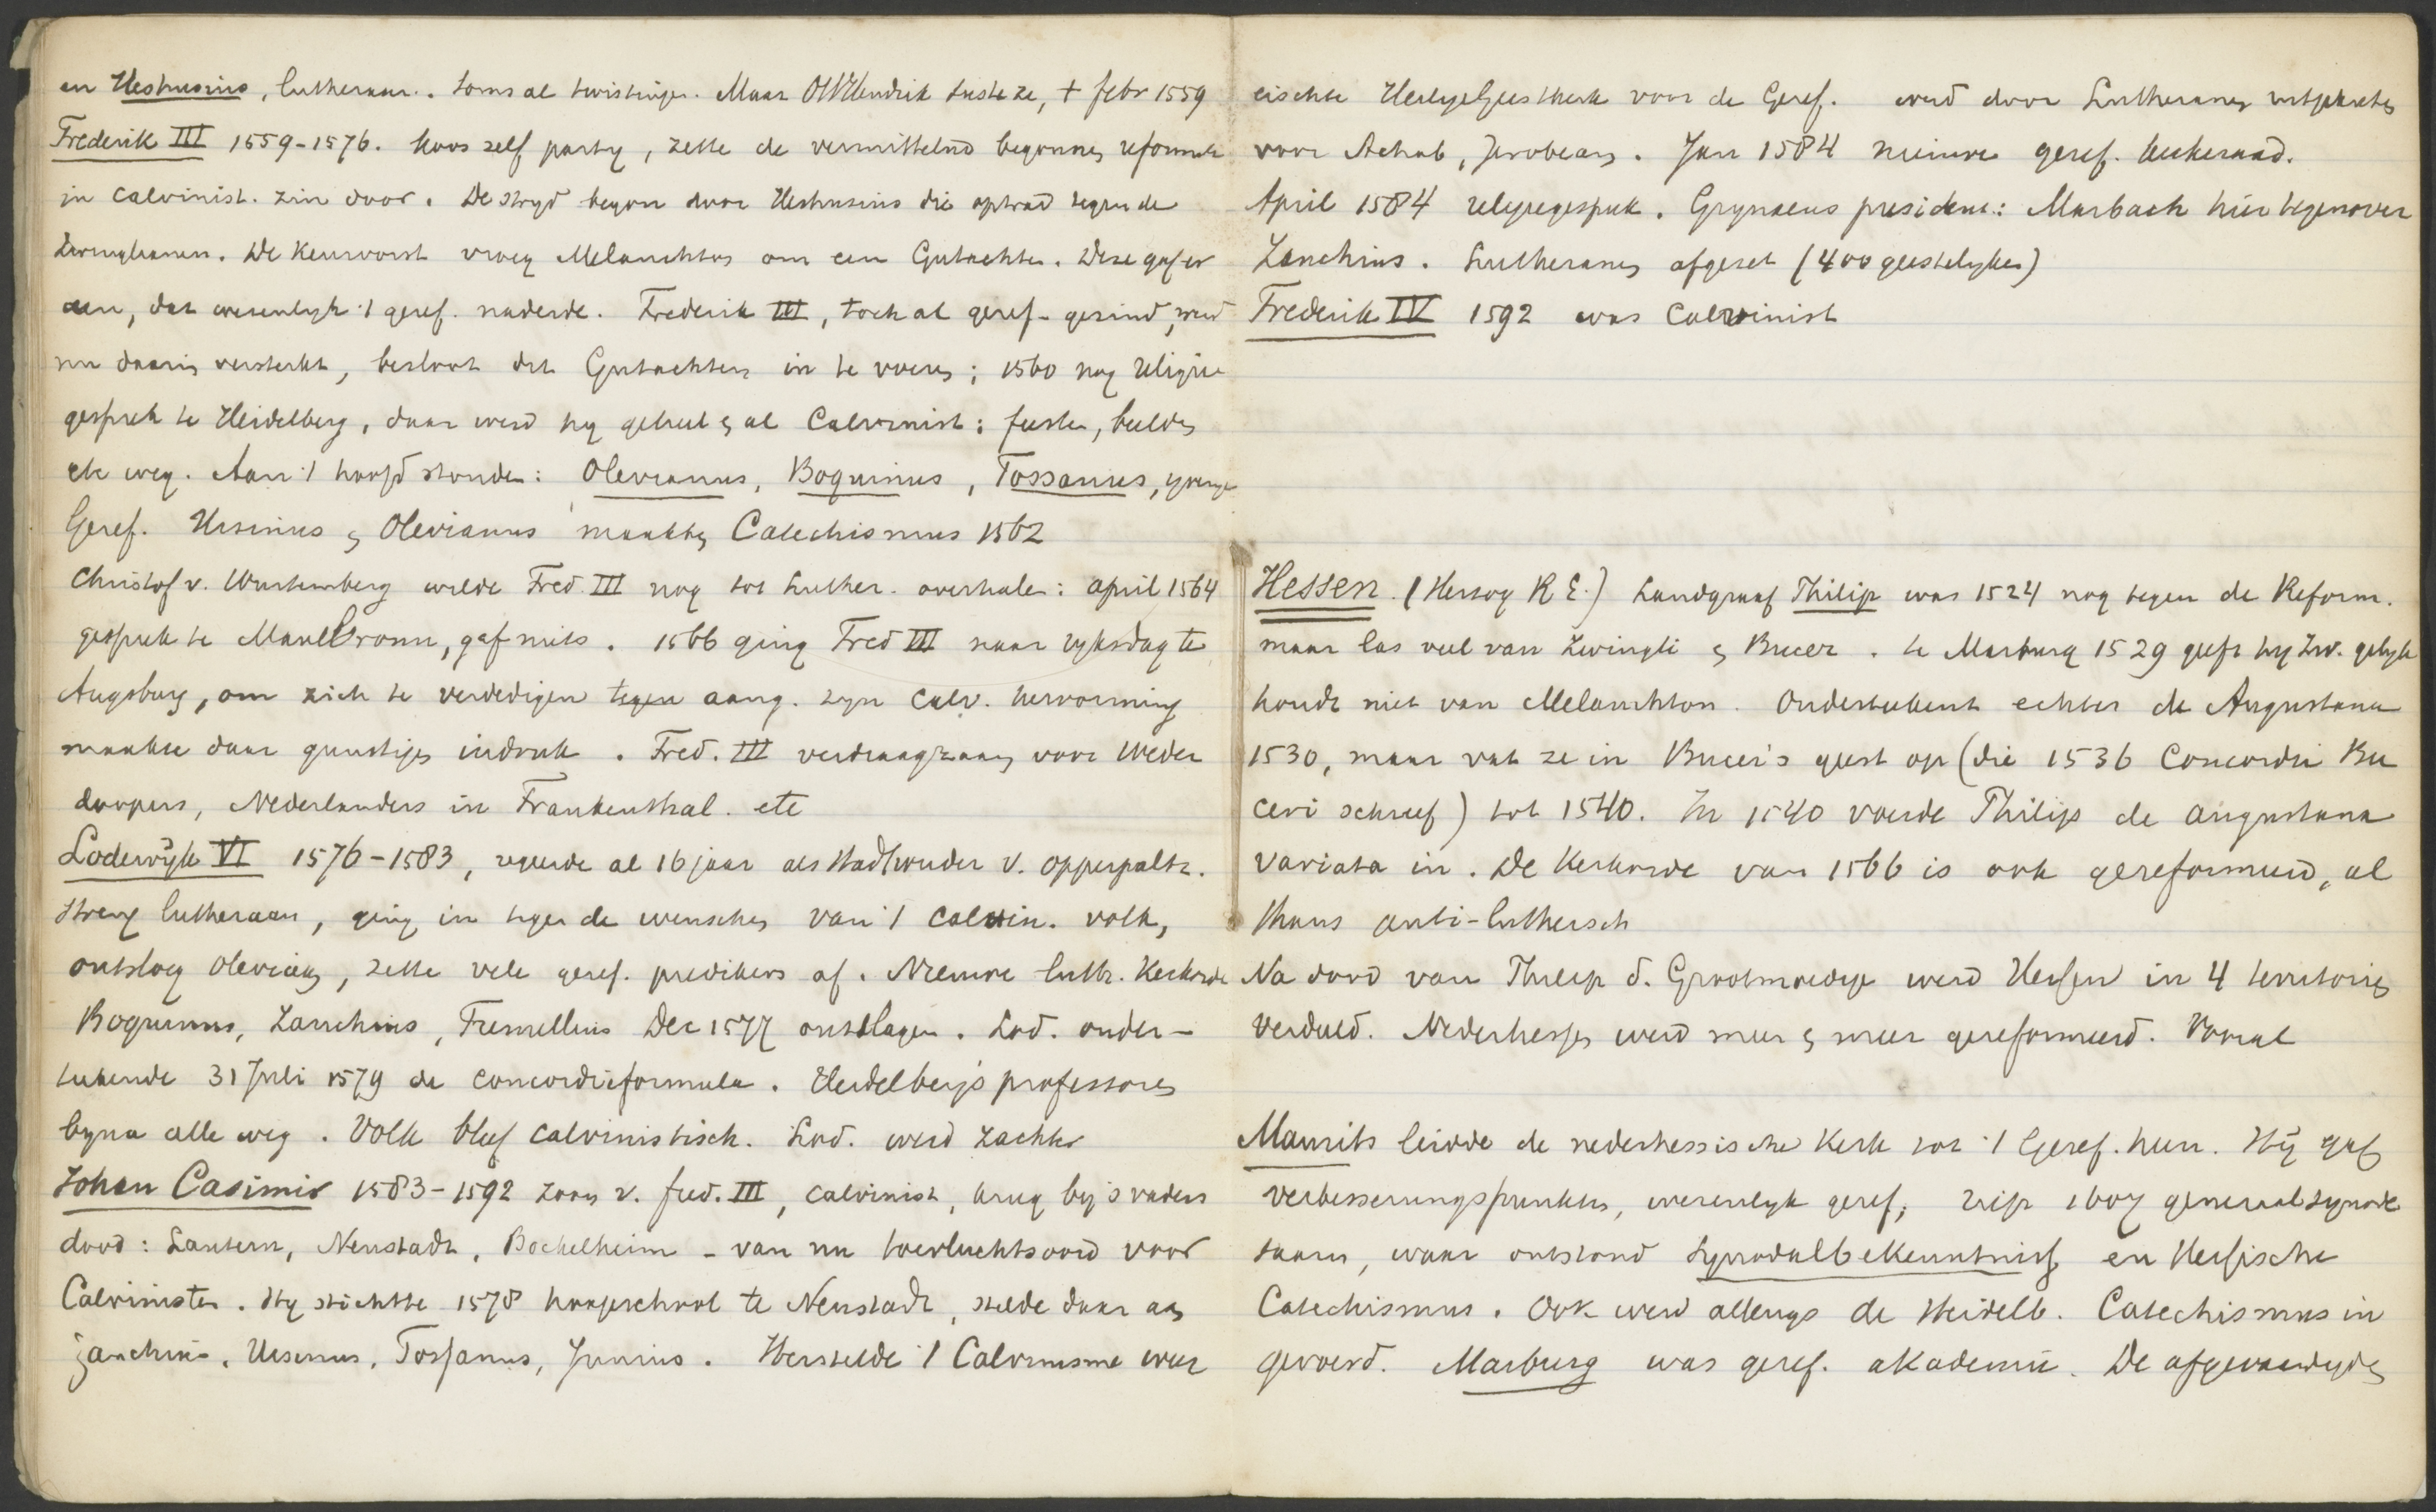 en Heshusius, lutheraan. Soms al twistingen. Maar Ott Hendrik suste ze, + febr 1559
Frederik III 1559-1576. Koos zelf party, zette de vermittelnd begonnen reformatie
in calvinist. zin door. De stryd begon door Heshusius die optrad tegen de
Zwinglianen. De Keurvorst vroeg Melanchton om een Gutachten. Deze gaf er
een, dat wezenlyk 't geref. naderde. Frederik III, toch al geref. gezind, werd
nu daarin versterkt, besloot dit Gutachten in te voeren; 1560 nog religie
gesprek te Heidelberg, daar werd hy geheel en al Calvinist: feesten, beelden
etc weg. Aan 't hoofd stonden: Olevianus, Boquinus, Tossanus, yverige
Geref. Ursinus en Olevianus maakten Catechismus 1562
Christof v. Wurtemberg wilde Fred. III nog tot Luther. overhalen: april 1564
gesprek te Maulbronn, gaf niets. 1566 ging Fred III naar ryksdag te
Augsburg, om zich te verdedigen tegen aang. zyn calv. hervorming
maakte daar gunstigen indruk. Fred. III verdraagzaam voor Weder
doopers, Nederlanders in Frankenthal. etc
Lodewyk VI 1576-1583, regeerde al 16 jaar als stadhouder v. opperpaltz.
streng lutheraan, ging in tegen de wenschen van 't calvin. volk,
ontsloeg Olevianus, zette vele geref. predikers af. Nieuwe luth. Kerkorde
Boquinus, Zanchius, Tremellius Dec 1577 ontslagen. Lod. onder-
tekende 31 Juli 1579 de concordieformule. Heidelberg's professoren
byna alle weg. Volk bleef calvinistisch. Lod. werd zachter
Johan Casimir 1583-1592 zoon v. fred. III, calvinist, kreeg by 's vaders
dood: Lautern, Neustadt, Bockelheim - van nu toevluchtsoord voor
Calvinisten. Hy stichtte 1578 hoogeschool te Neustadt, stelde daar aan
Zanchius, Ursinus, Tossanus, Junius. Herstelde 't Calvinisme weer
eischte HeiligeGeestkerk voor de Geref. werd door Lutheranen uitgekreten
voor Achab, Jerobeam. Jan 1584 nieuwe geref. kerkeraad.
April 1584 religiegesprek. Grynaeus president: Marbach hier tegenover
Zanchius. Lutheranen afgezet (400 geestelyken)
Frederik IV 1592 was Calvinist
Hessen. (Herzog R E.) Landgraaf Philip was 1524 nog tegen de Reform.
maar las veel van Zwingli en Bucer. te Marburg 1529 geeft hy Zw. gelyk
houdt niet van Melanchton. Onderteekent echter de Augustana
1530, maar vat ze in Bucer's geest op (die 1536 Concordia Bu
ceri schreef) tot 1540. In 1540 voerde Philip de Augustana
variata in. De Kerkorde van 1566 is ook gereformeerd, al
thans anti-luthersch
Na dood van Philip d. Grootmoedige werd Hessen in 4 territorien
verdeeld. Nederhessen werd meer en meer gereformeerd. Vooral
Maurits leidde de nederhessische Kerk tot 't Geref. heen. Hij gaf
verbesserungspunkten, wezenlyk geref, riep 1607 generaalsynode
saam, waar ontstond Synodalbekenntniss en Hessische
Catechismus. Ook werd allengs de Heidelb. Catechismus in
gevoerd. Marburg was geref. akademie. De afgevaardigden